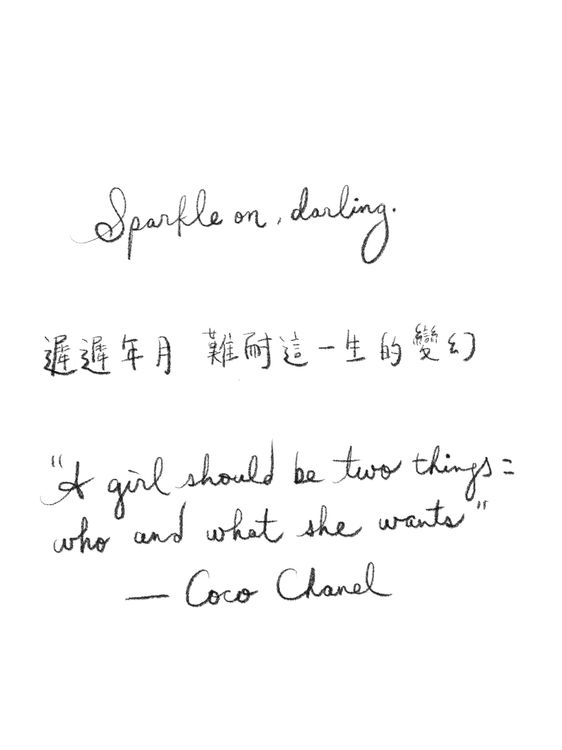 Sparkle on, darling.
遲遲年月 難耐這一生的變幻
"A girl should be two things:
who and what she wants"
— Coco Chanel